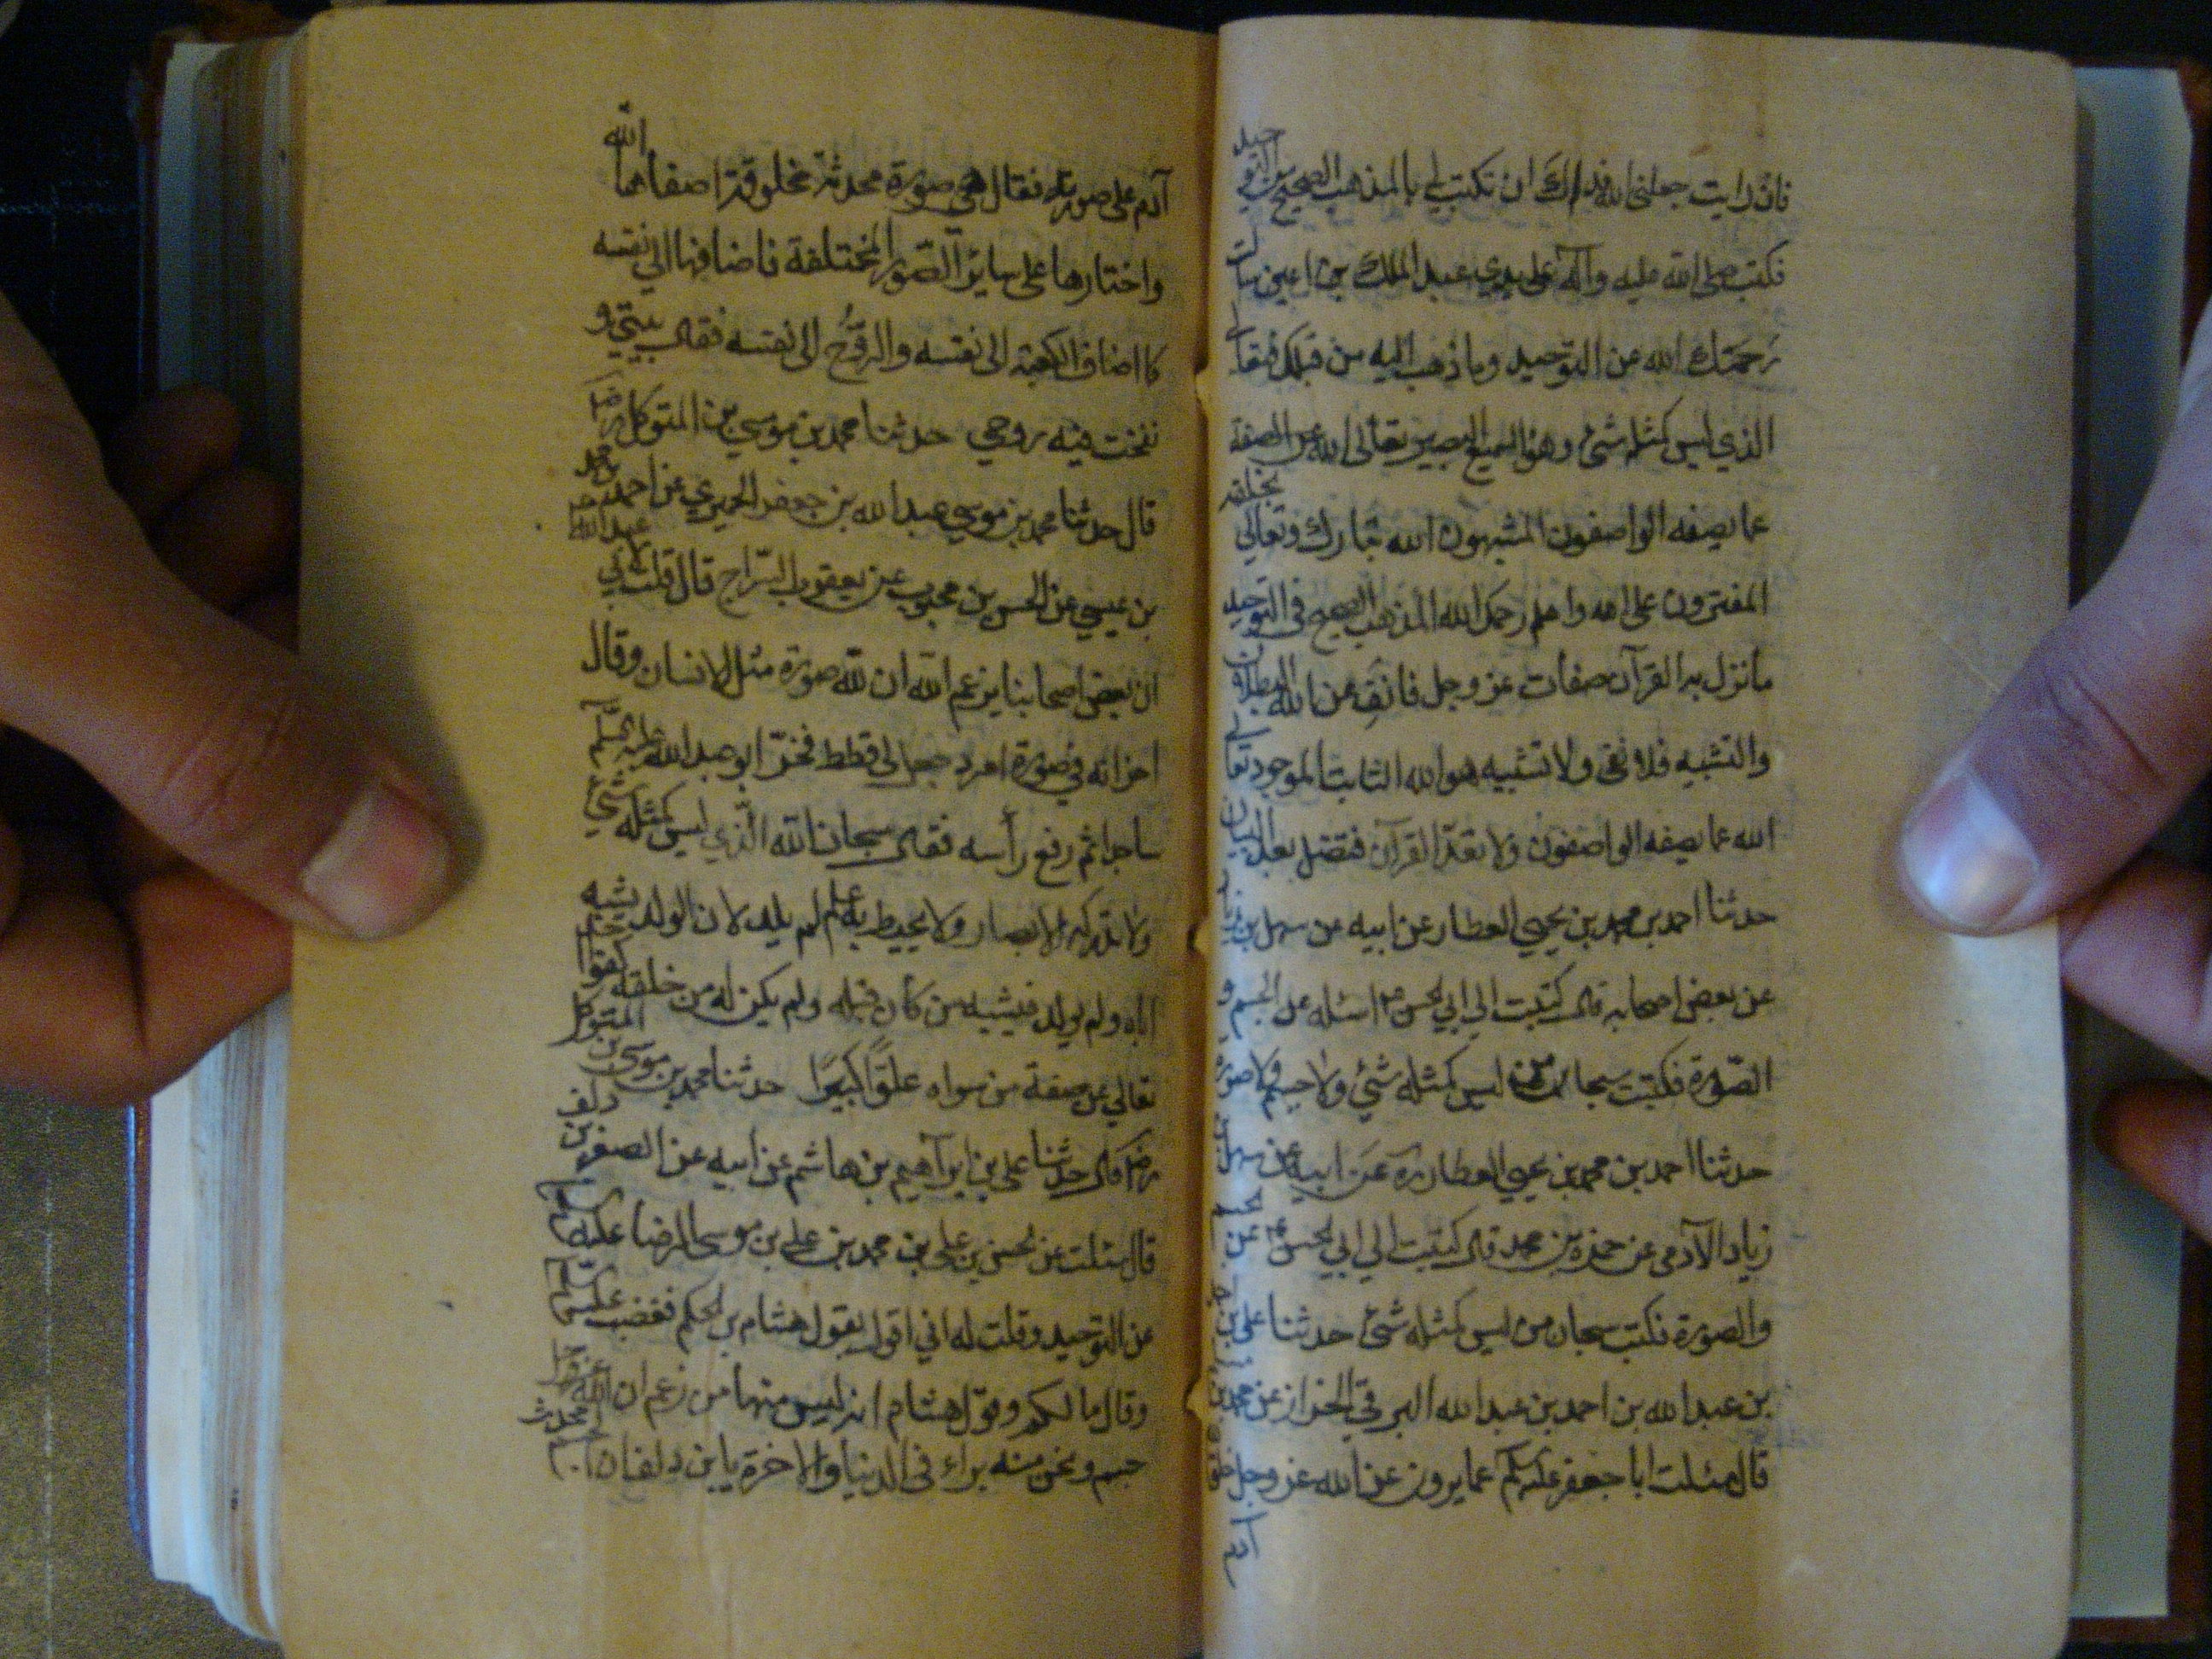 فان رايت جعلني الله فداك ان تكتب لي بالمذهب الصحيح من التوحيد
فكتب صلى الله عليه وآله على يدي عبد الملك بن اعين سالت
رحمك الله عن التوحيد وما ذهب اليه من قبلك فتعالى
الذي ليس كمثله شئ وهو السميع البصير تعالى الله عن الصفة
عما يصفه الواصفون المشبهون الله تبارك وتعالى بخلقه
المفترون على الله واعلم رحمك الله المذهب الصحيح في التوحيد
ما نزل به القرآن صفات عز وجل فانف عن الله البطلان
والتشبيه فلا نفي ولا تشبيه هو الله الثابت الموجود تعالى
الله عما يصفه الواصفون ولا تعد القرآن فتضل بعد البيان
حدثنا احمد بن محمد بن يحيى العطار عن ابيه عن سهل بن زياد
عن بعض اصحابه قال كتبت الى ابي الحسن اسئله عن الجسم و
الصورة فكتب سبحان من ليس كمثله شئ ولا جسم ولا صورة
حدثنا احمد بن محمد بن يحيى العطار ره عن ابيه عن سهل بن
زياد الآدمي عن حمزة بن محمد قال كتبت الى ابي الحسن عن
والصورة فكتب سبحان من ليس كمثله شئ حدثنا علي بن
بن عبد الله بن احمد بن عبد الله البرقي الخزاز عن محمد بن
قال سئلت ابا جعفر عليه السلم عما يروون عن الله عز وجل خلق
آدم
آدم على صورته فقال هي صورة محدثة مخلوقة اصفاها الله
واختارها على سائر الصور المختلفة فاضافها الى نفسه
كما اضاف الكعبة الى نفسه والروح الى نفسه فقال بيتي و
نفخت فيه روحي حدثنا محمد بن موسى بن المتوكل رض
قال حدثنا محمد بن موسى عبد الله بن جعفر الحميري عن احمد بن محمد
بن عيسى عن الحسن بن محبوب عن يعقوب السراج قال قلت لابي عبد الله
ان بعض اصحابنا يزعم الله ان لله صورة مثل الانسان وقال
اخر انه في صورة امرد جعد قطط فخر ابو عبد الله عليه السلم
ساجدا ثم رفع رأسه فقال سبحان الله الذي ليس كمثله شئ
ولا تدركه الابصار ولا يحيط به علم لم يلد لان الولد يشبه
اباه ولم يولد فيشبه من كان قبله ولم يكن له من خلقه كفوا
تعالى عن صفة من سواه علوا كبيرا حدثنا محمد بن موسى بن المتوكل
رض قال حدثنا علي بن ابراهيم بن هاشم عن ابيه عن الصقر بن دلف
قال سئلت عن الحسن بن علي بن محمد بن علي بن موسى الرضا عليه السلم
عن التوحيد وقلت له اني اقول بقول هشام بن الحكم فغضب عليه السلم
وقال ما لكم وقول هشام انه ليس منها من زعم ان الله عز وجل
جسم ونحن منه براء في الدنيا والاخرة يا ابن دلف ان الجسم محدث